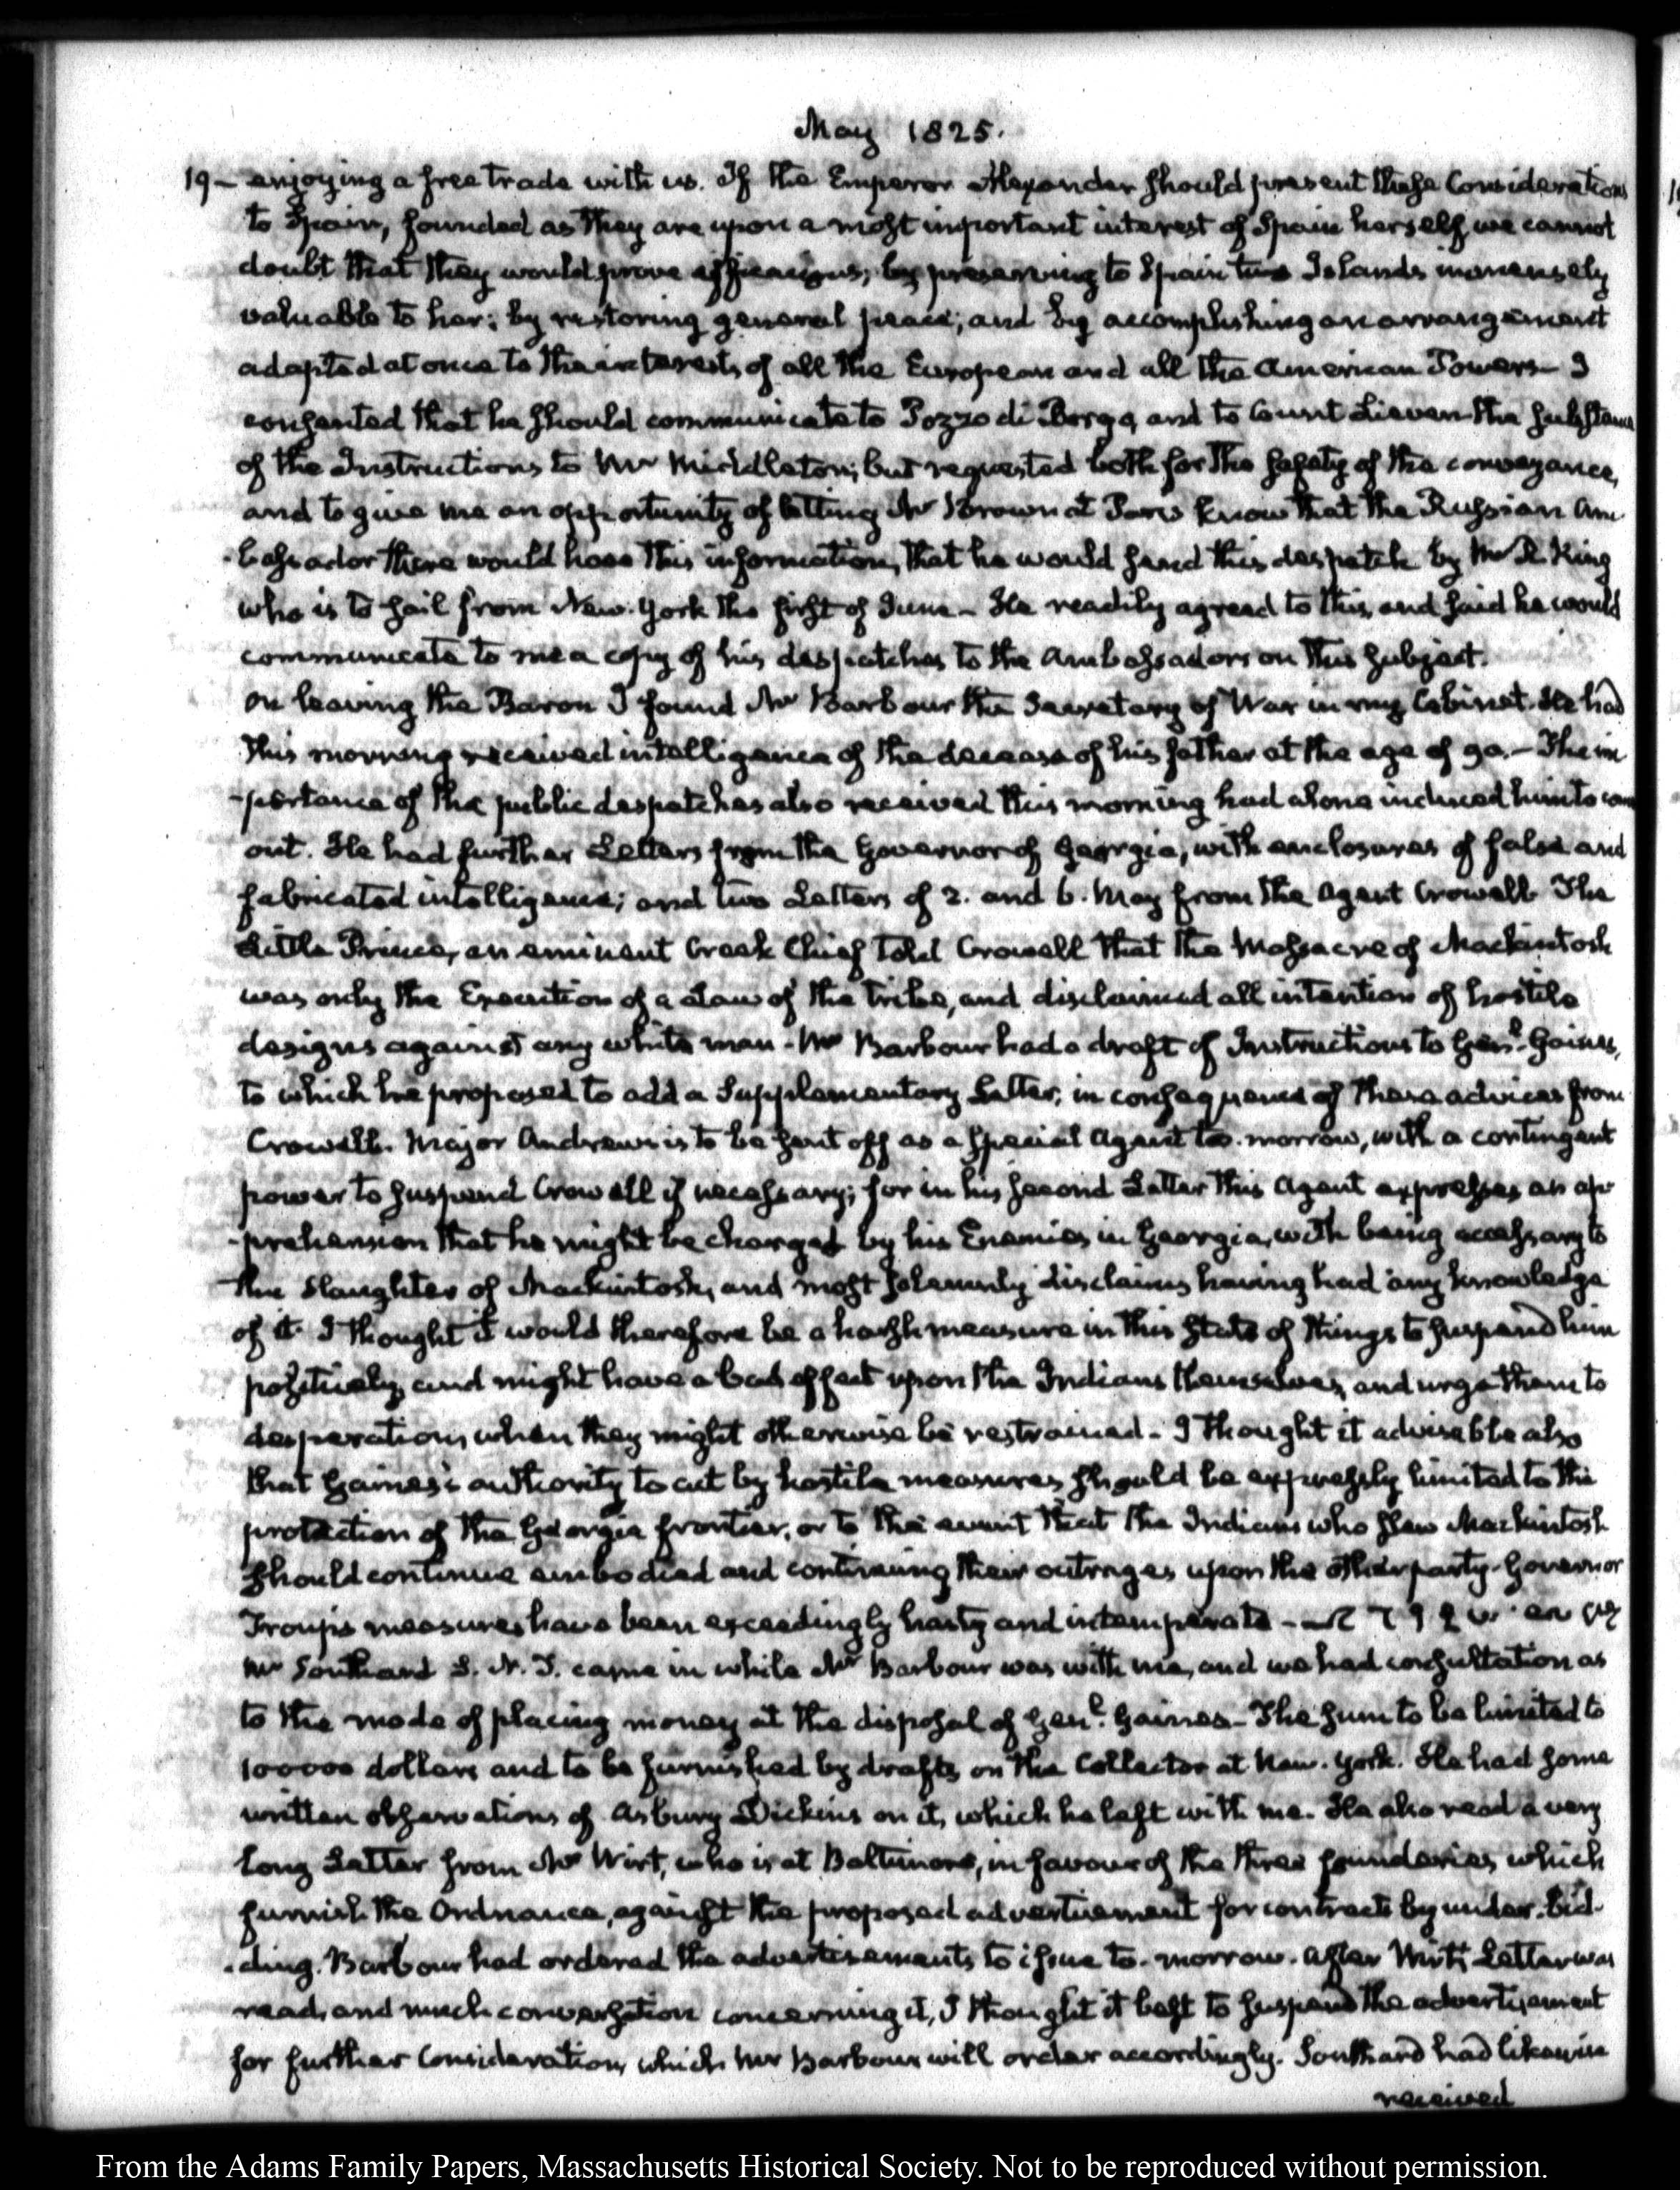 May 1825.
19– enjoying a free trade with us. If the Emperor Alexander should present these Considerations
to Spain, founded as they are upon a most important interest of Spain herself, we cannot
doubt that they would prove efficacious; by preserving to Spain two Islands immensely
valuable to her; by restoring general peace; and by accomplishing an arrangement
adapted at once to the interests of all the European and all the American Powers– I
consented that he should communicate to Pozzo di Borgo, and to Count Lieven the substance
of the Instructions to Mr Middleton; but requested both for the safety of the conveyance,
and to give me an opportunity of letting Mr Brown at Paris know that the Russian Am
-bassador there would have this information, that he would send this despatch by Mr R. King
who is to sail from New-York the first of June– He readily agreed to this, and said he would
communicate to me a copy of his despatches to the Ambassadors on this subject.
On leaving the Baron I found Mr Barbour the Secretary of War in my Cabinet. He had
this morning received intelligence of the decease of his father at the age of 90.– The im
-portance of the public despatches also received this morning had alone induced him to come
out. He had further Letters from the Governor of Georgia, with enclosures of false and
fabricated intelligence; and two Letters of 2. and 6. May from the Agent Crowell. The
Little Prince, an eminent Creek Chief told Crowell that the Massacre of Mackintosh
was only the Execution of a Law of the tribe, and disclaimed all intention of hostile
designs against any white man– Mr Barbour had a draft of Instructions to Genl. Gaines,
to which he proposed to add a Supplementary Letter, in consequence of these advices from
Crowell. Major Andrews is to be sent off as a special Agent to-morrow, with a contingent
power to suspend Crowell if necessary; for in his second Letter this Agent expresses an ap
-prehension that he might be charged by his Enemies in Georgia, with being accessary to
the slaughter of Mackintosh, and most solemnly disclaims having had any knowledge
of it. I thought it would therefore be a harsh measure in this state of things to suspend him
positively, and might have a bad effect upon the Indians themselves, and urge them to
desperation, when they might otherwise be restrained– I thought it advisable also
that Gaines's authority to act by hostile measures should be expressly limited to the
protection of the Georgia frontier, or to the event that the Indians who slew Mackintosh
should continue embodied and continuing their outrages upon the other party– Governor
Troup's measures have been exceedingly hasty and intemperate–
Mr Southard S. N. D. came in while Mr Barbour was with me, and we had consultation as
to the mode of placing money at the disposal of Genl. Gaines– The sum to be limited to
100000 dollars and to be furnished by drafts on the Collector at New-York. He had some
written observations of Asbury Dickins on it, which he left with me. He also read a very
long Letter from Mr Wirt, who is at Baltimore, in favour of the three founderies which
furnish the Ordnance, against the proposed advertisement for contracts by under-bid-
-ding. Barbour had ordered the advertisements to issue to-morrow. After Wirt's Letter was
read, and much conversation concerning it, I thought it best to suspend the advertisement
for further consideration, which Mr Barbour will order accordingly. Southard had likewise
received
From the Adams Family Papers, Massachusetts Historical Society. Not to be reproduced without permission.